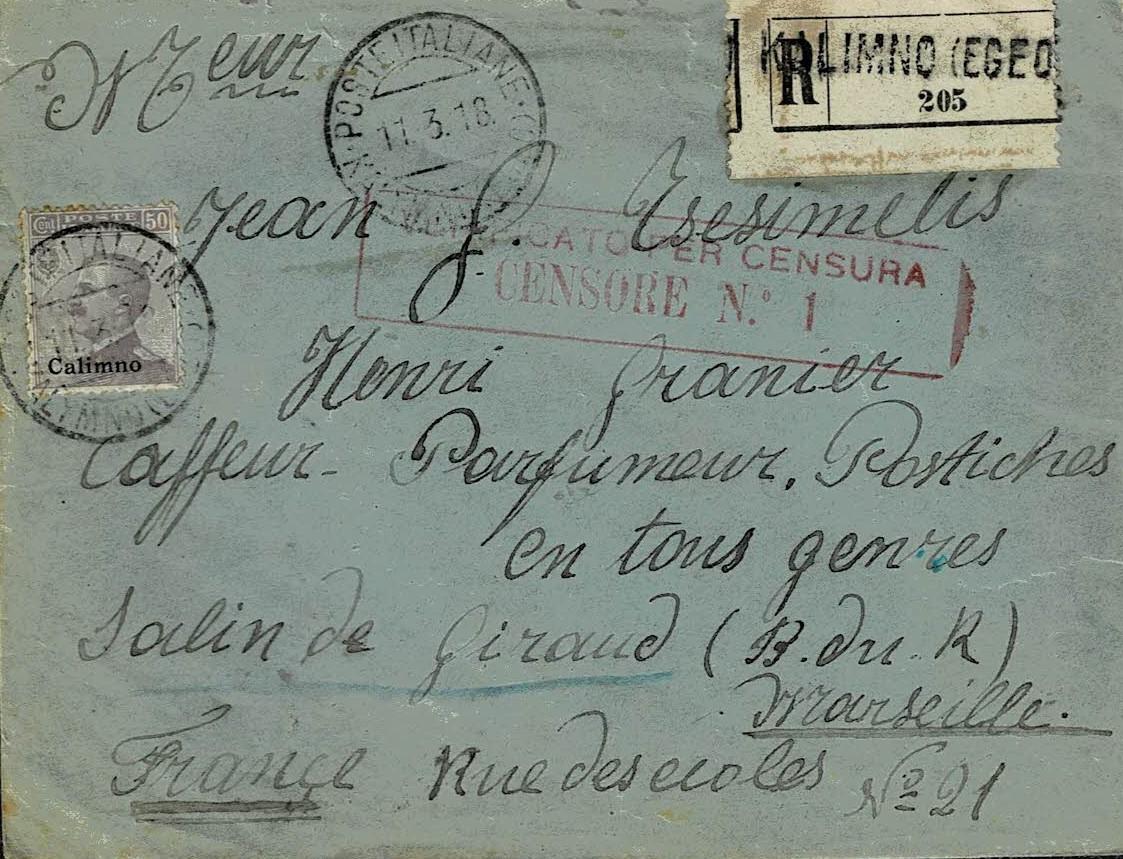 Meur
POSTE ITALIANE
11.3.18
R
KALIMNO (EGEO
205
Jean G. Tsesimelis
POSTE 50
ITALIANE
Calimno
PER CENSURA
CENSORE N.° 1
Henri Granier
Caffeur - Parfumeur, Postiches
en tous genres
Salin de Giraud (B. du. R)
Marseille.
France Rue des ecoles No 21